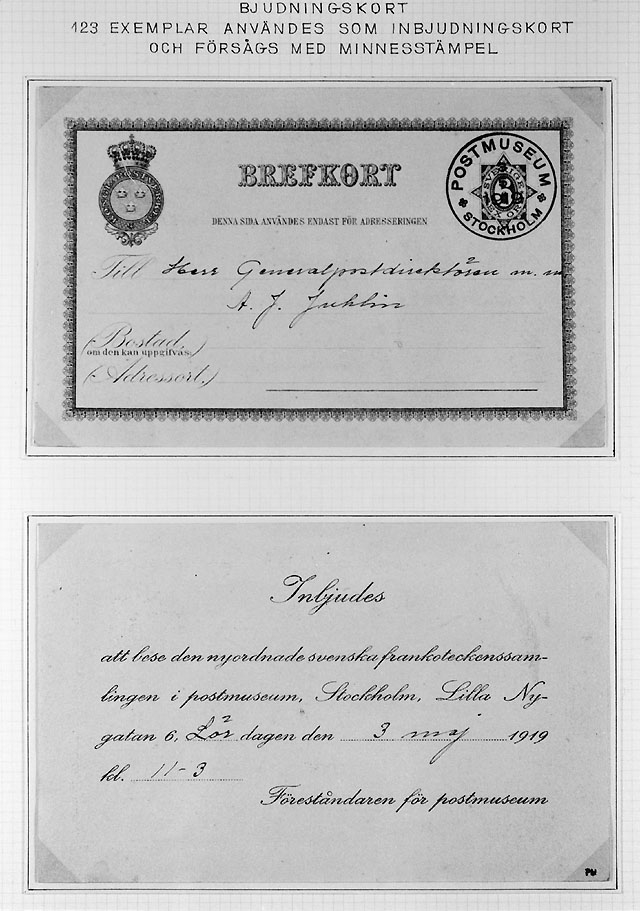 BJUDNINGSKORT
123 EXEMPLAR ANVÄNDES SOM INBJUDNINGSKORT
OCH FÖRSÅGS MED MINNESSTÄMPEL
BREFKORT
DENNA SIDA ANVÄNDES ENDAST FÖR ADRESSERINGEN
POSTMUSEUM
SVERIGE
6
STOCKHOLM
Till Herr Generalpostdirektören m. m
A. J. Juhlin
(Bostad,
om den kan uppgifvas)
(Adressort.)
Inbjudes
att bese den nyordnade svenska frankoteckenssam-
lingen i postmuseum, Stockholm, Lilla Ny-
gatan 6, Lör dagen den 3 maj 1919
kl. 11-3
Föreståndaren för postmuseum
PM